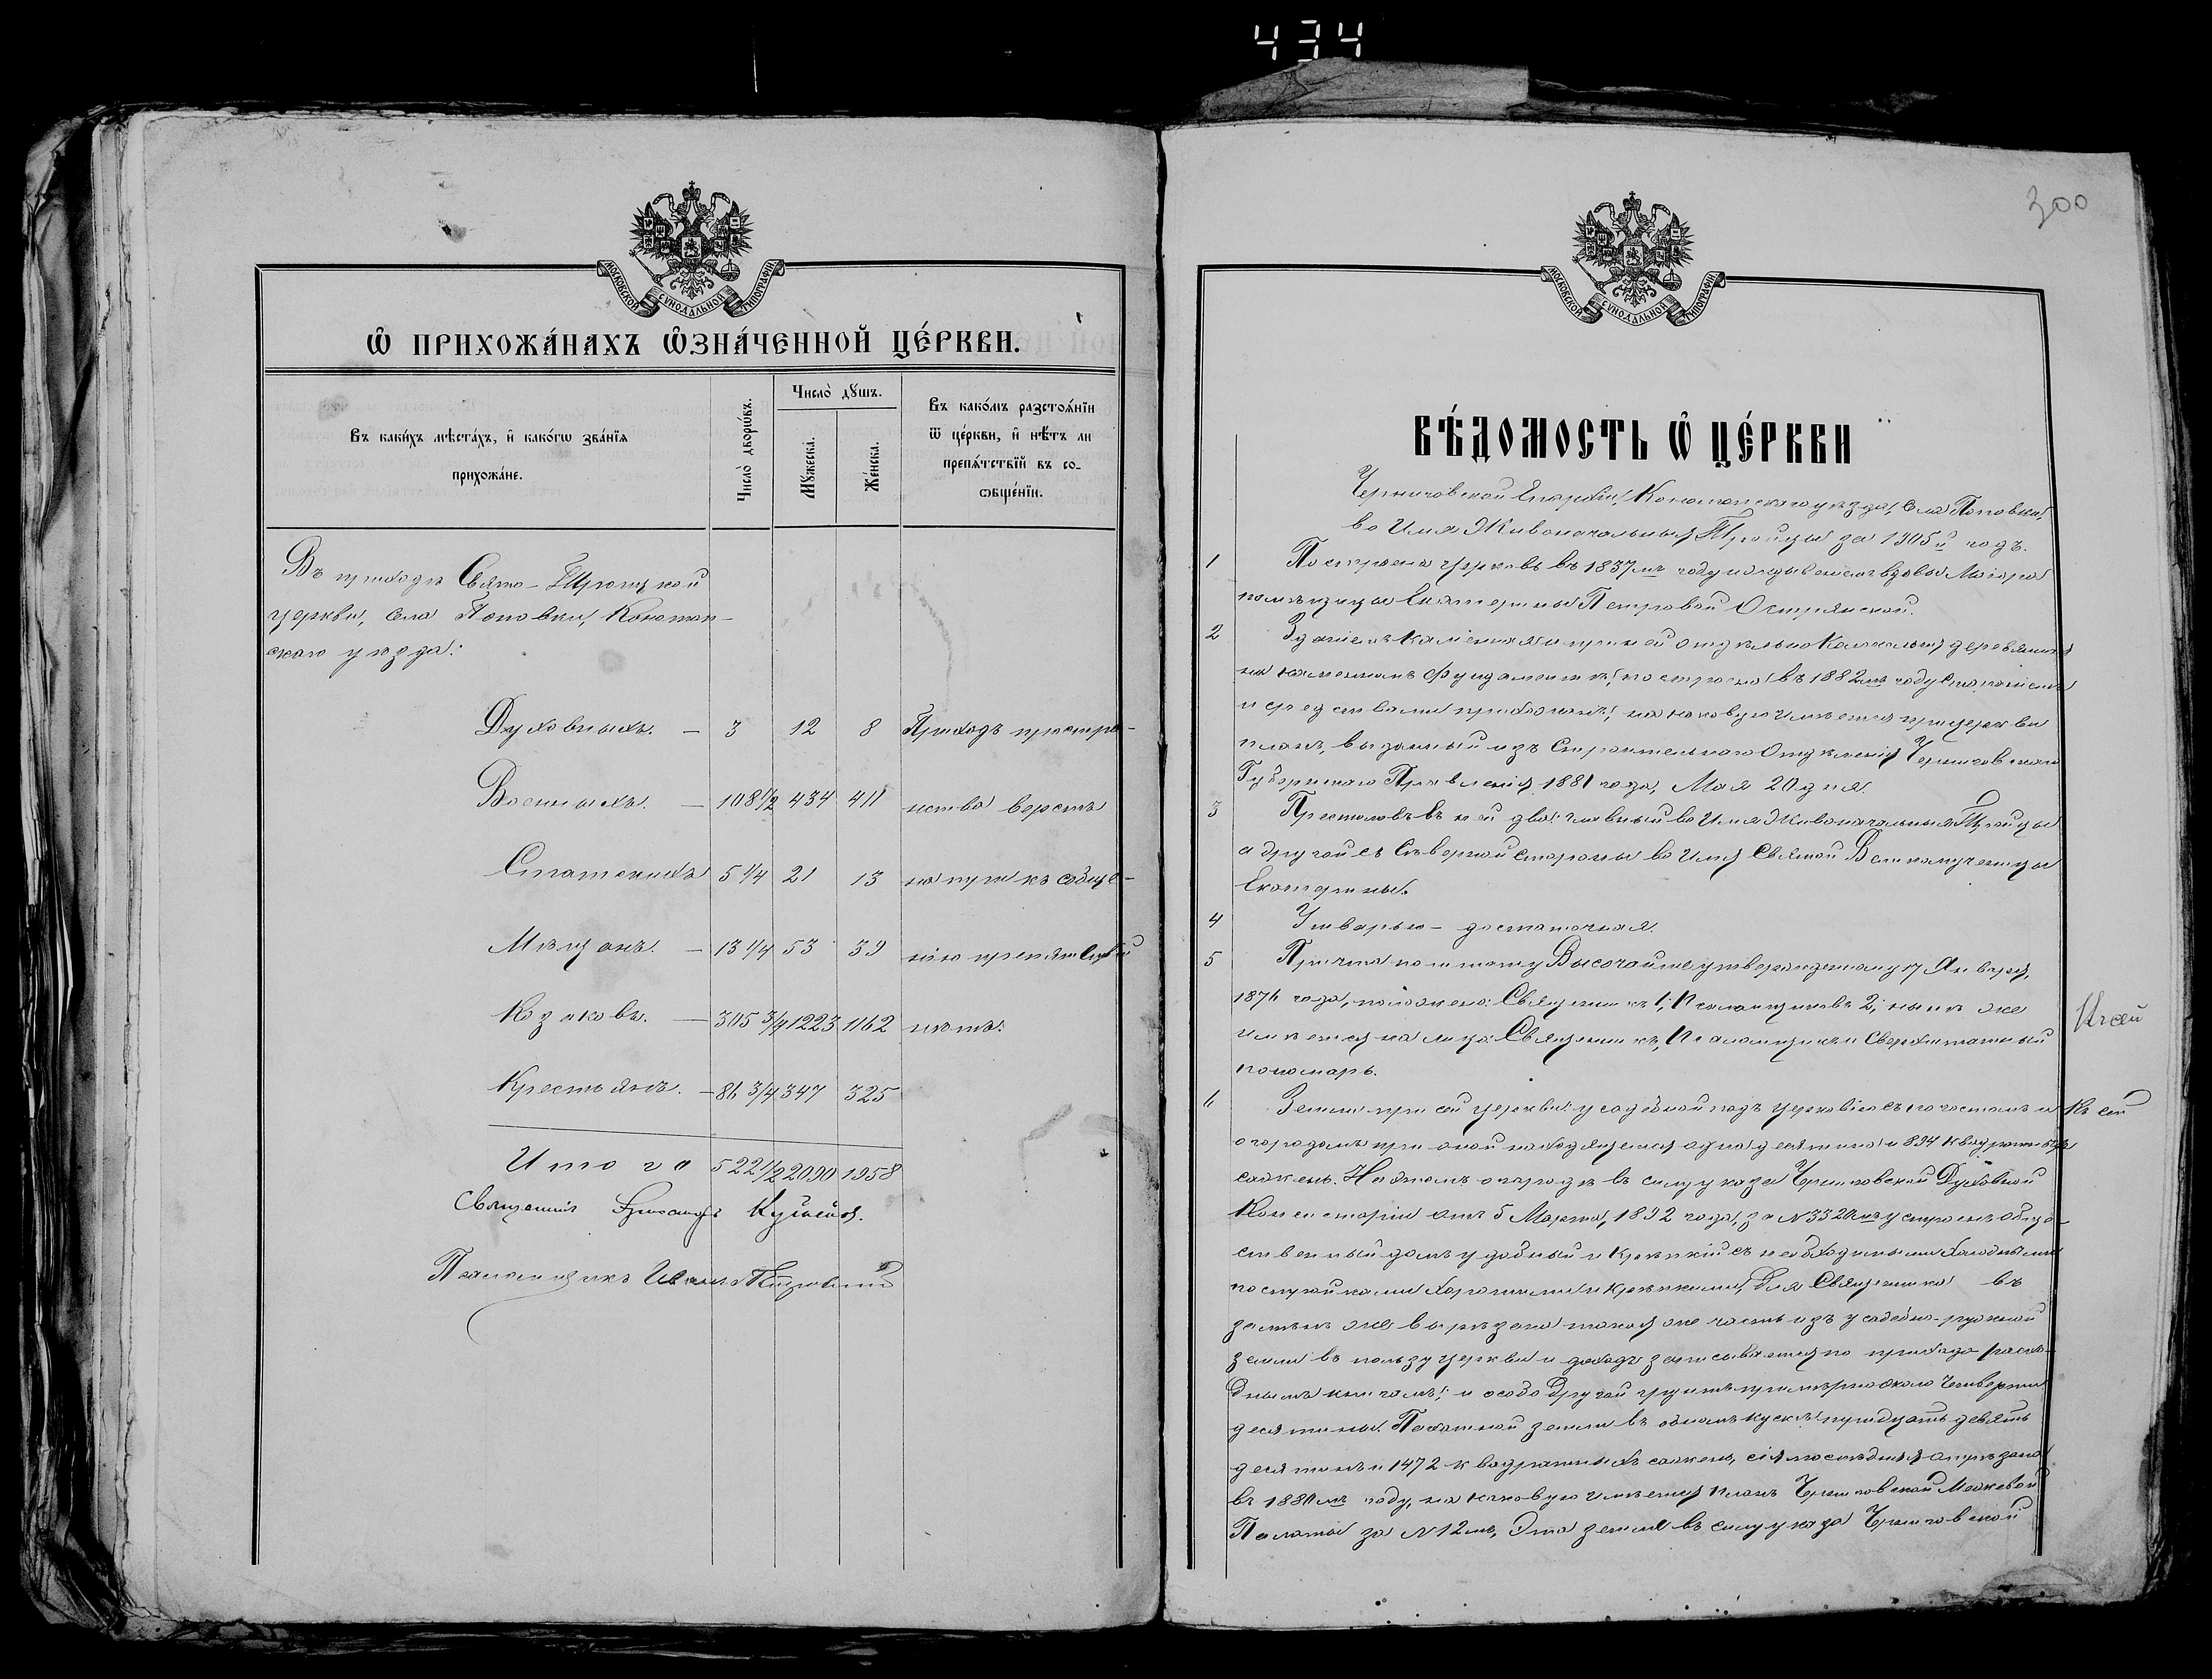 434
МОСКОВСКОЙ СѴНОДАЛЬНОЙ ТИПОГРАФІИ
Ѡ ПРИХОЖА́НАХЪ ѠЗНА́ЧЕННОЙ ЦЕ́РКВИ.
Въ каки́хъ мѣста́хъ, и҆ како́гѡ зва́нїѧ
прихожа́не.
Число̀ дворѡ́въ.
Число̀ дꙋ́шъ.
Мꙋ́жеска.
Же́нска.
Въ како́мъ разстоѧ́нїи
ѿ це́ркви, и҆ нѣ́тъ ли
препѧ́тствїй въ со-
ѻбще́нїи.
Въ приходѣ Свято-Троицкой
церкви, села Поповки, Конотоп-
скаго уѣзда:
Духовныхъ. — 3 12 8 Приходъ простра-
Военныхъ. — 108 1/2 434 411 нства верстъ
Статскихъ 5 1/4 21 13 на пути къ сообще-
Мѣщанъ. — 13 1/4 53 39 нію препятствій
Козаковъ. — 305 3/4 1223 1162 нѣтъ.
Крестьянъ. — 86 3/4 347 325
Итого 522 1/2 2090 1958
Священникъ
Псаломщикъ Иванъ
300
МОСКОВСКОЙ СѴНОДАЛЬНОЙ ТИПОГРАФІИ
ВѢ́ДОМОСТЬ Ѡ ЦЕ́РКВИ
Черниговской Епархіи, Конотопскаго уѣзда, села Поповки,
во Имя Живоначальныя Троицы за 1905й годъ.
1 Построена церковь въ 1837мъ году иждивеніемъ вдовы Маіора
помѣщицы Екатерины Петровой Острянской.
2 Зданіемъ каменная и при ней отдѣльно колокольня деревянная
на каменномъ фундаментѣ, построена въ 1882мъ году
и средствами прихожанъ, на каковую имѣется при церкви
планъ, выданный изъ Строительнаго Отдѣленія Черниговскаго
Губернскаго Правленія 1881 года, Мая 20 дня.
3 Престоловъ въ ней два: главный во Имя Живоначальныя Троицы
а другой съ Сѣверной стороны во Имя Святой Великомученицы
Екатерины.
4 Утварью — достаточная.
5 Причта по штату Высочайше утвержденному 17 Января,
1876 года, положено: Священникъ 1, Псаломщиковъ 2; нынѣ же
имѣется на лицо: Священникъ, Псаломщикъ и Сверхштатный
пономарь.
6 Земли при сей церкви: усадебной подъ церковію съ погостомъ и
огородомъ при оной находящемся одна десятина и 894 квадратныхъ
сажень. На этомъ огородѣ въ силу указа Черниговской Духовной
Консисторіи отъ 5 Марта, 1892 года, за N 3320мъ устроенъ обще-
ственный домъ удобный и крѣпкій съ необходимыми холодными
постройками хорошими и крѣпкими, для Священника въ
замѣнъ же вырѣзана такая же часть изъ усадебно-ружной
земли въ пользу церкви и доходъ записывается по приходо-расхо-
днымъ книгамъ; и особо другой грунтъ примѣрно около четверти
десятины. Пахатной земли въ одномъ кускѣ тридцать девять
десятинъ и 1472 квадратныхъ сажень, сія послѣдняя отрѣзана
въ году, на каковую имѣется планъ Черниговской Межевой
Палаты за N 12мъ, Эта земля въ силу указа Черниговской